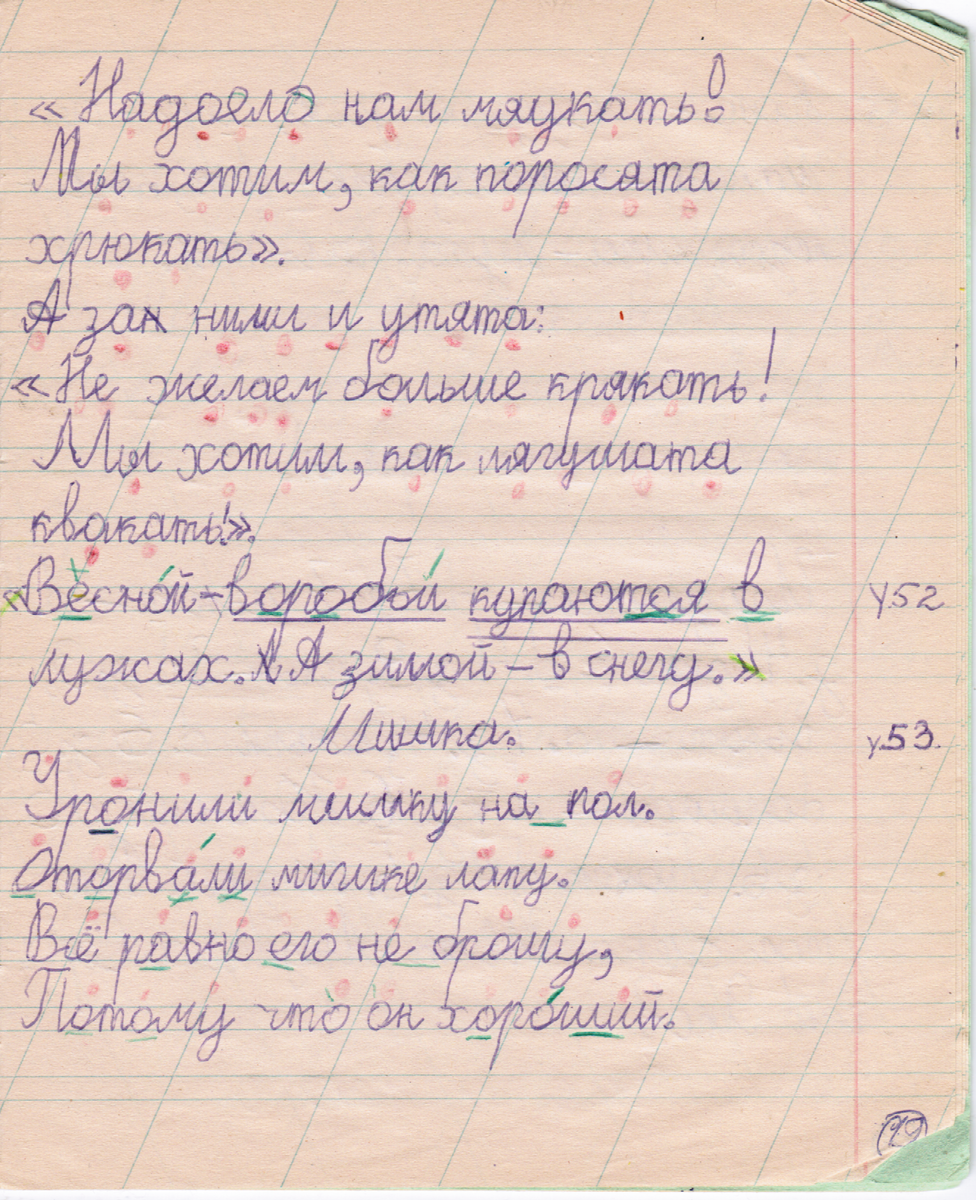 «Надоело нам мяукать!
Мы хотим, как поросята
хрюкать».
А за ними и утята:
«Не желаем больше крякать!
Мы хотим, как лягушата
квакать!».
«Весной – воробьи купаются в у52
лужах. А зимой – в снегу.»
Мишка. у.53.
Уронили мишку на пол.
Оторвали мишке лапу.
Всё равно его не брошу,
Потому что он хороший.
19